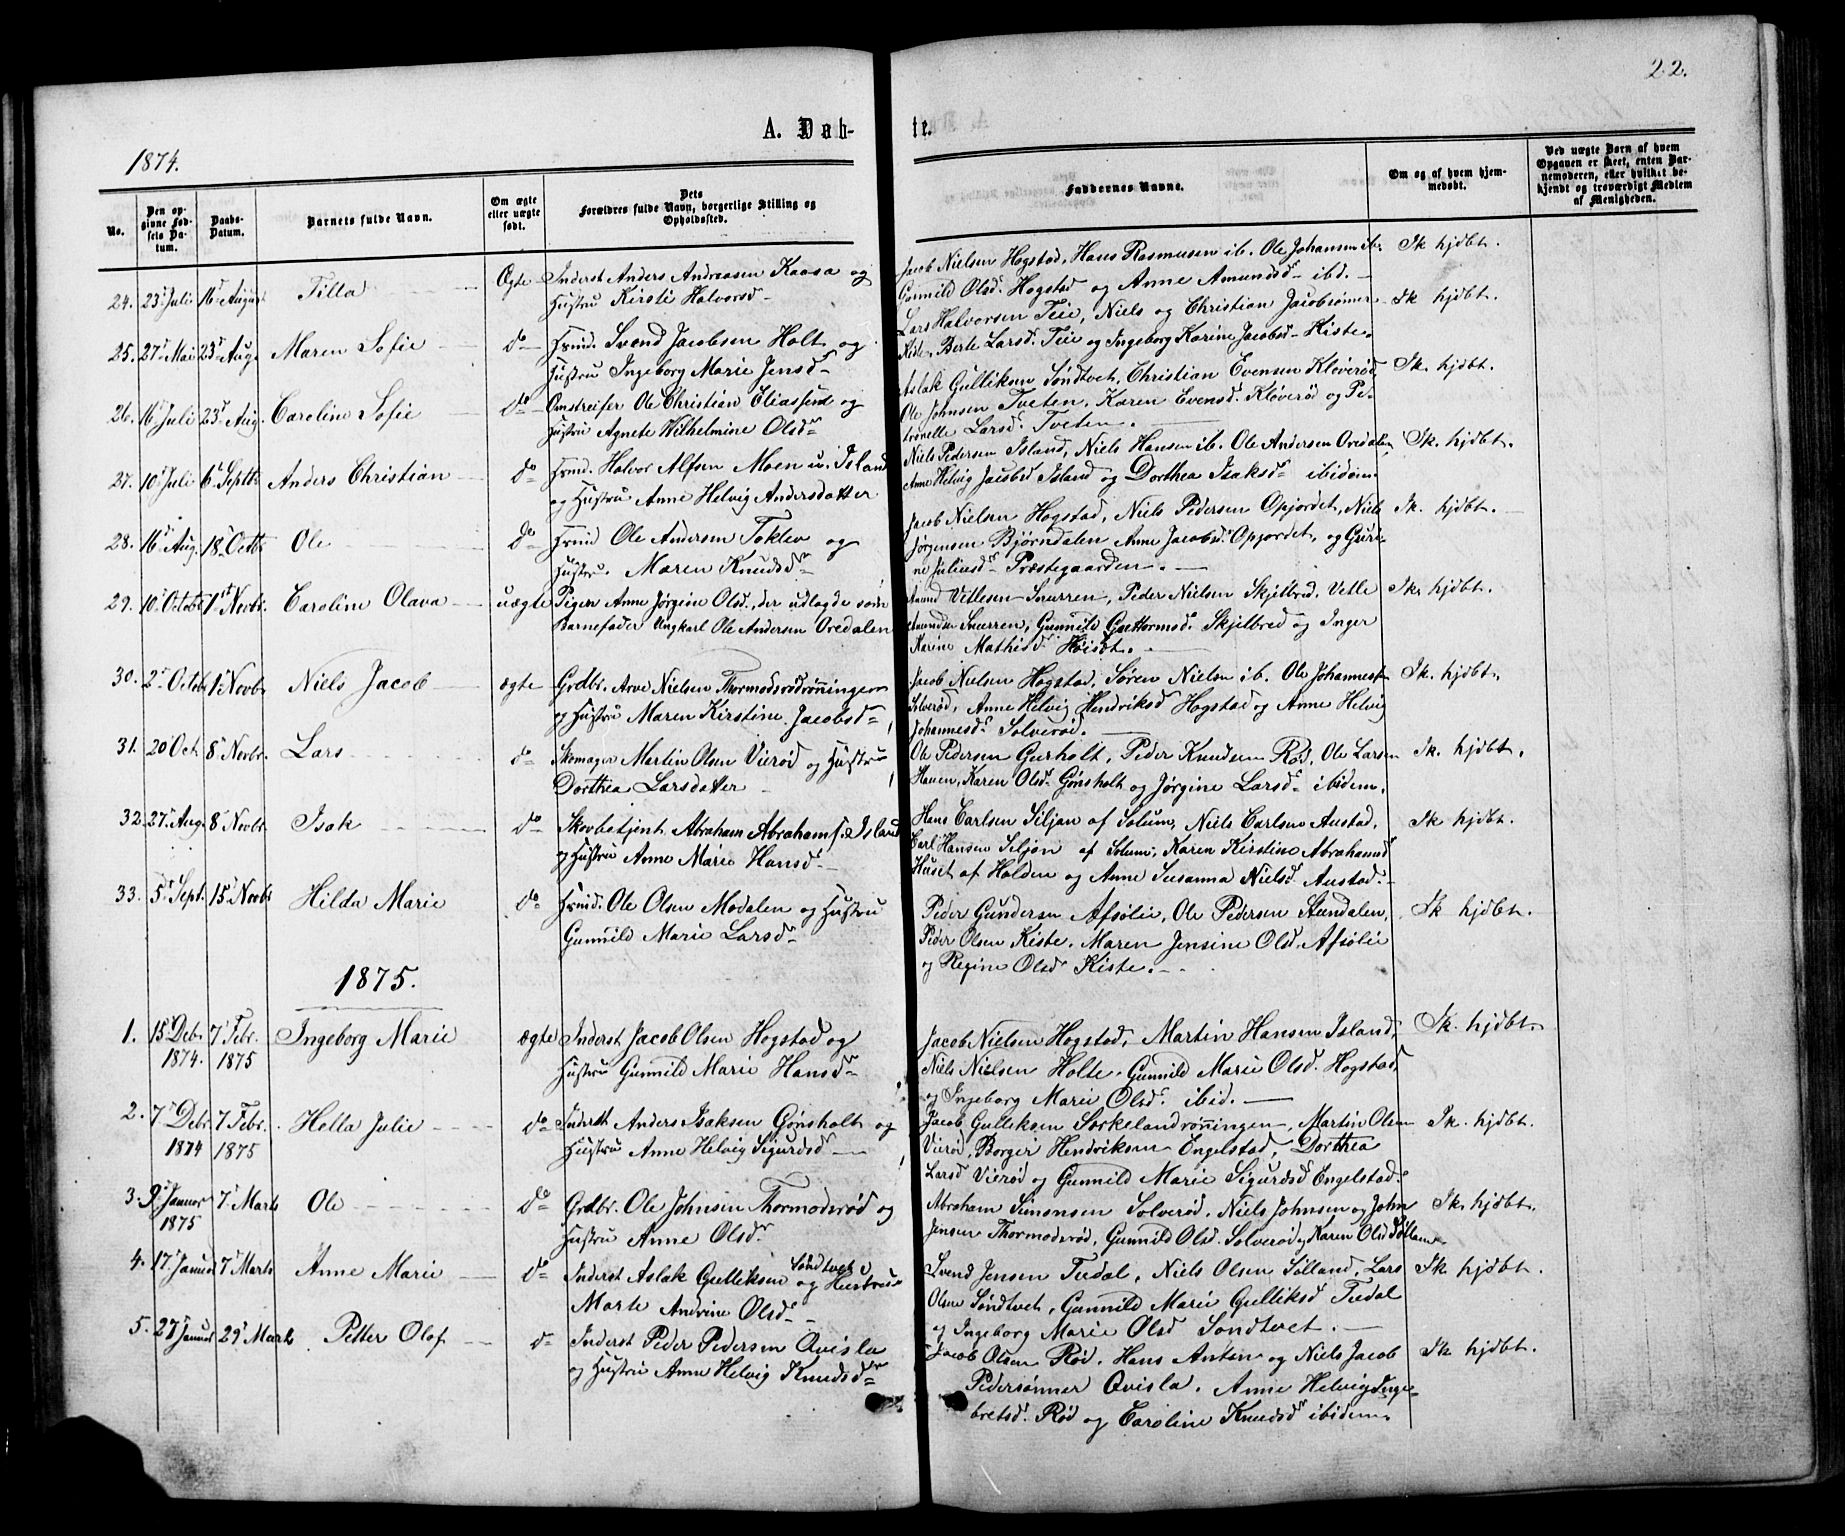 22.
A. Døb-
te.
1874.
No.
Den opgivne Fødsels Datum.
Daabs-Datum.
Barnets fulde Navn.
Om ægte eller uægte født.
Dets Forældres fulde Navn, borgerlige Stilling og Opholdssted.
Faddernes Navne.
Om og af hvem hjemmedøbt.
Ved uægte Børn af hvem Opgaven er skeet, enten Barnemoderen, eller hvilket bekjendt og troværdigt Medlem af Menigheden.
24. 23d Juli 16d August Tilla Ægte Inderst Anders Andreasen Kaasa og
Hustru Kirsti Halvorsd.
Jacob Nielsen Hogstad, Hans Rasmusen ib. Ole Johansen ib.
Gunnild Olsd. Hogstad og Anne Amundsd. ibid.
Ik hjdbt.
25. 27d Mai 23d Aug. Maren Sofie do Svend Jacobsen Holt og
Hustru Ingeborg Marie Jensd.
Lars Halvorsen Teie, Niels og Christian Jacobsønner
Kiste, Berte Larsd. Teie og Ingeborg Karine Jacobsd. Kiste.
Ik hjdbt.
26. 16d Juli 23d Aug. Caroline Sofie do Omstreifer Ole Christian Eliassen og
Hustru Agnete Wilhelmine Olsd.
Aslak Gulliksen Søndtvet, Christian Evensen Kløverød
Ole Johnsen Tveten, Karen Evensd. Kløverød og Pe-
tronelle Larsd. Tveten.
Ik. hjdbt.
27. 10d Juli 6d Septbr Anders Christian do Halvor Alfsen Moen u. Island
og Hustru Anne Helvig Andersdatter
Niels Pedersen Island, Niels Hansen ib. Ole Andersen Oredalen,
Anne Helvig Jacobsd Island og Dorthea Isaksd. ibidem
Ik. hjdbt.
28. 16d Aug. 18d Octbr Ole do Ole Andersen Toklev og
Hustru. Maren Knudsd.
Jacob Nielsen Hogstad, Niels Pedersen Opjordet, Niels
Jørgensen Bjørndalen Anne Jacobsd. Opjordet, og Guri-
ne Juliusd. Præstegaarden.
Ik. hjdbt.
29. 10d Octobr 1st Novbr. Caroline Olava uægte Pigen Anne Jørgine Olsd., der udlagde som
Barnefader Ungkarl Ole Andersen Oredalen
Amund Vetlesen Snurren, Peder Nielsen Skjelbred, Vetle
Amundsen Snurren, Gunnild Guttormsd. Skjelbred og Inger
Karine Mathisd. Høisæt.
Ik. hjdbt.
30. 2d Octobr 1st Novbr Niels Jacob ægte Grdbr. Arve Nielsen Thormodsrødrønningen
og Hustru Maren Kirstine Jacobsd.
Jacob Nielsen Hogstad, Søren Nielsen ib. Ole Johannesen
Solverød, Anne Helvig Hendriksd Hogstad og Anne Helvig
Johannesd. Solverød.
Ik. hjdbt.
31. 20 Oct. 8d Novbr. Lars do Skomager Martin Olsen Vierød og Hustru
Dorthea Larsdatter
Ole Pedersen Gurholt, Peder Knudsen Rød, Ole Larsen
Haven, Karen Olsd. Gønsholt og Jørgine Larsd. ibidem.
Ik. hjdbt.
32. 27d Aug. 8d Novbr. Isak do Skovbetjent Abraham Abrahams. Island
og Hustru Anne Marie Hansd.
Hans Carlsen Siljan af Solum, Niels Carlsen Austad,
Carl Hansen Siljan af Solum, Karen Kirstine Abrahamsd
Huset af Holden og Anne Susanna Nielsd. Austad.
Ik hjdbt.
33. 5d Sept. 15d Novbr Hilda Marie do Ole Olsen Modalen og Hustru
Gunnild Marie Larsd.
Peder Gundersen Afsølie, Ole Pedersen Stendalen,
Peder Olsen Kiste, Maren Jensine Olsd. Afsølie
og Regine Olsd Kiste.
Ik hjdbt.
1875.
1. 15d Debr 1874. 7d Febr. 1875 Ingeborg Marie ægte Inderst Jacob Olsen Hogstad og
Hustru Gunnild Marie Hansd.
Jacob Nielsen Hogstad, Martin Hansen Island,
Niels Nielsen Holte, Gunnild Marie Olsd. Hogstad,
og Ingeborg Marie Olsd. ibid.
Ik. hjdbt.
2. 7d Debr 1874 7d Febr. 1875 Hella Julie do Inderst Anders Isaksen Gønsholt og
Hustru Anne Helvig Sigurdsd
Jacob Gulliksen Sørkelandrønningen, Martin Olsen
Vierød, Borger Hendriksen Engelstad, Dorthea
Larsd Vierød og Gunnild Marie Sigurdsd Engelstad.
Ik. hjdbt.
3. 9d Januar 1875 7d Marts Ole do Grdbr. Ole Johnsen Thormodsrød og
Hustru Anne Olsd.
Abraham Simonsen Solverød, Niels Johnsen og John
Jensen Thormodsrød, Gunnild Olsd. Solverød og Karen Olsd
Ik. hjdbt.
4. 17d Januar 7d Marts Anne Marie do Inderst Aslak Gulliksen Søndtvet og Hustru
Marte Andrine Olsd.
Svend Jensen Tudal, Niels Olsen Solland, Lars
Olsen Søndtvet, Gunnild Marie Gulliksd Tudal
og Ingeborg Marie Olsd Søndtvet.
Ik hjdbt.
5. 27d Januar 29d Marts Petter Olof do Inderst Peder Pedersen Qvisla
og Hustru Anne Helvig Knudsd.
Jacob Olsen Rød, Hans Anton og Niels Jacob
Pedersønner Qvisla, Anne Helvig Inge-
bretsd. Rød og Caroline Knudsd. ibidem.
Ik hjdbt.